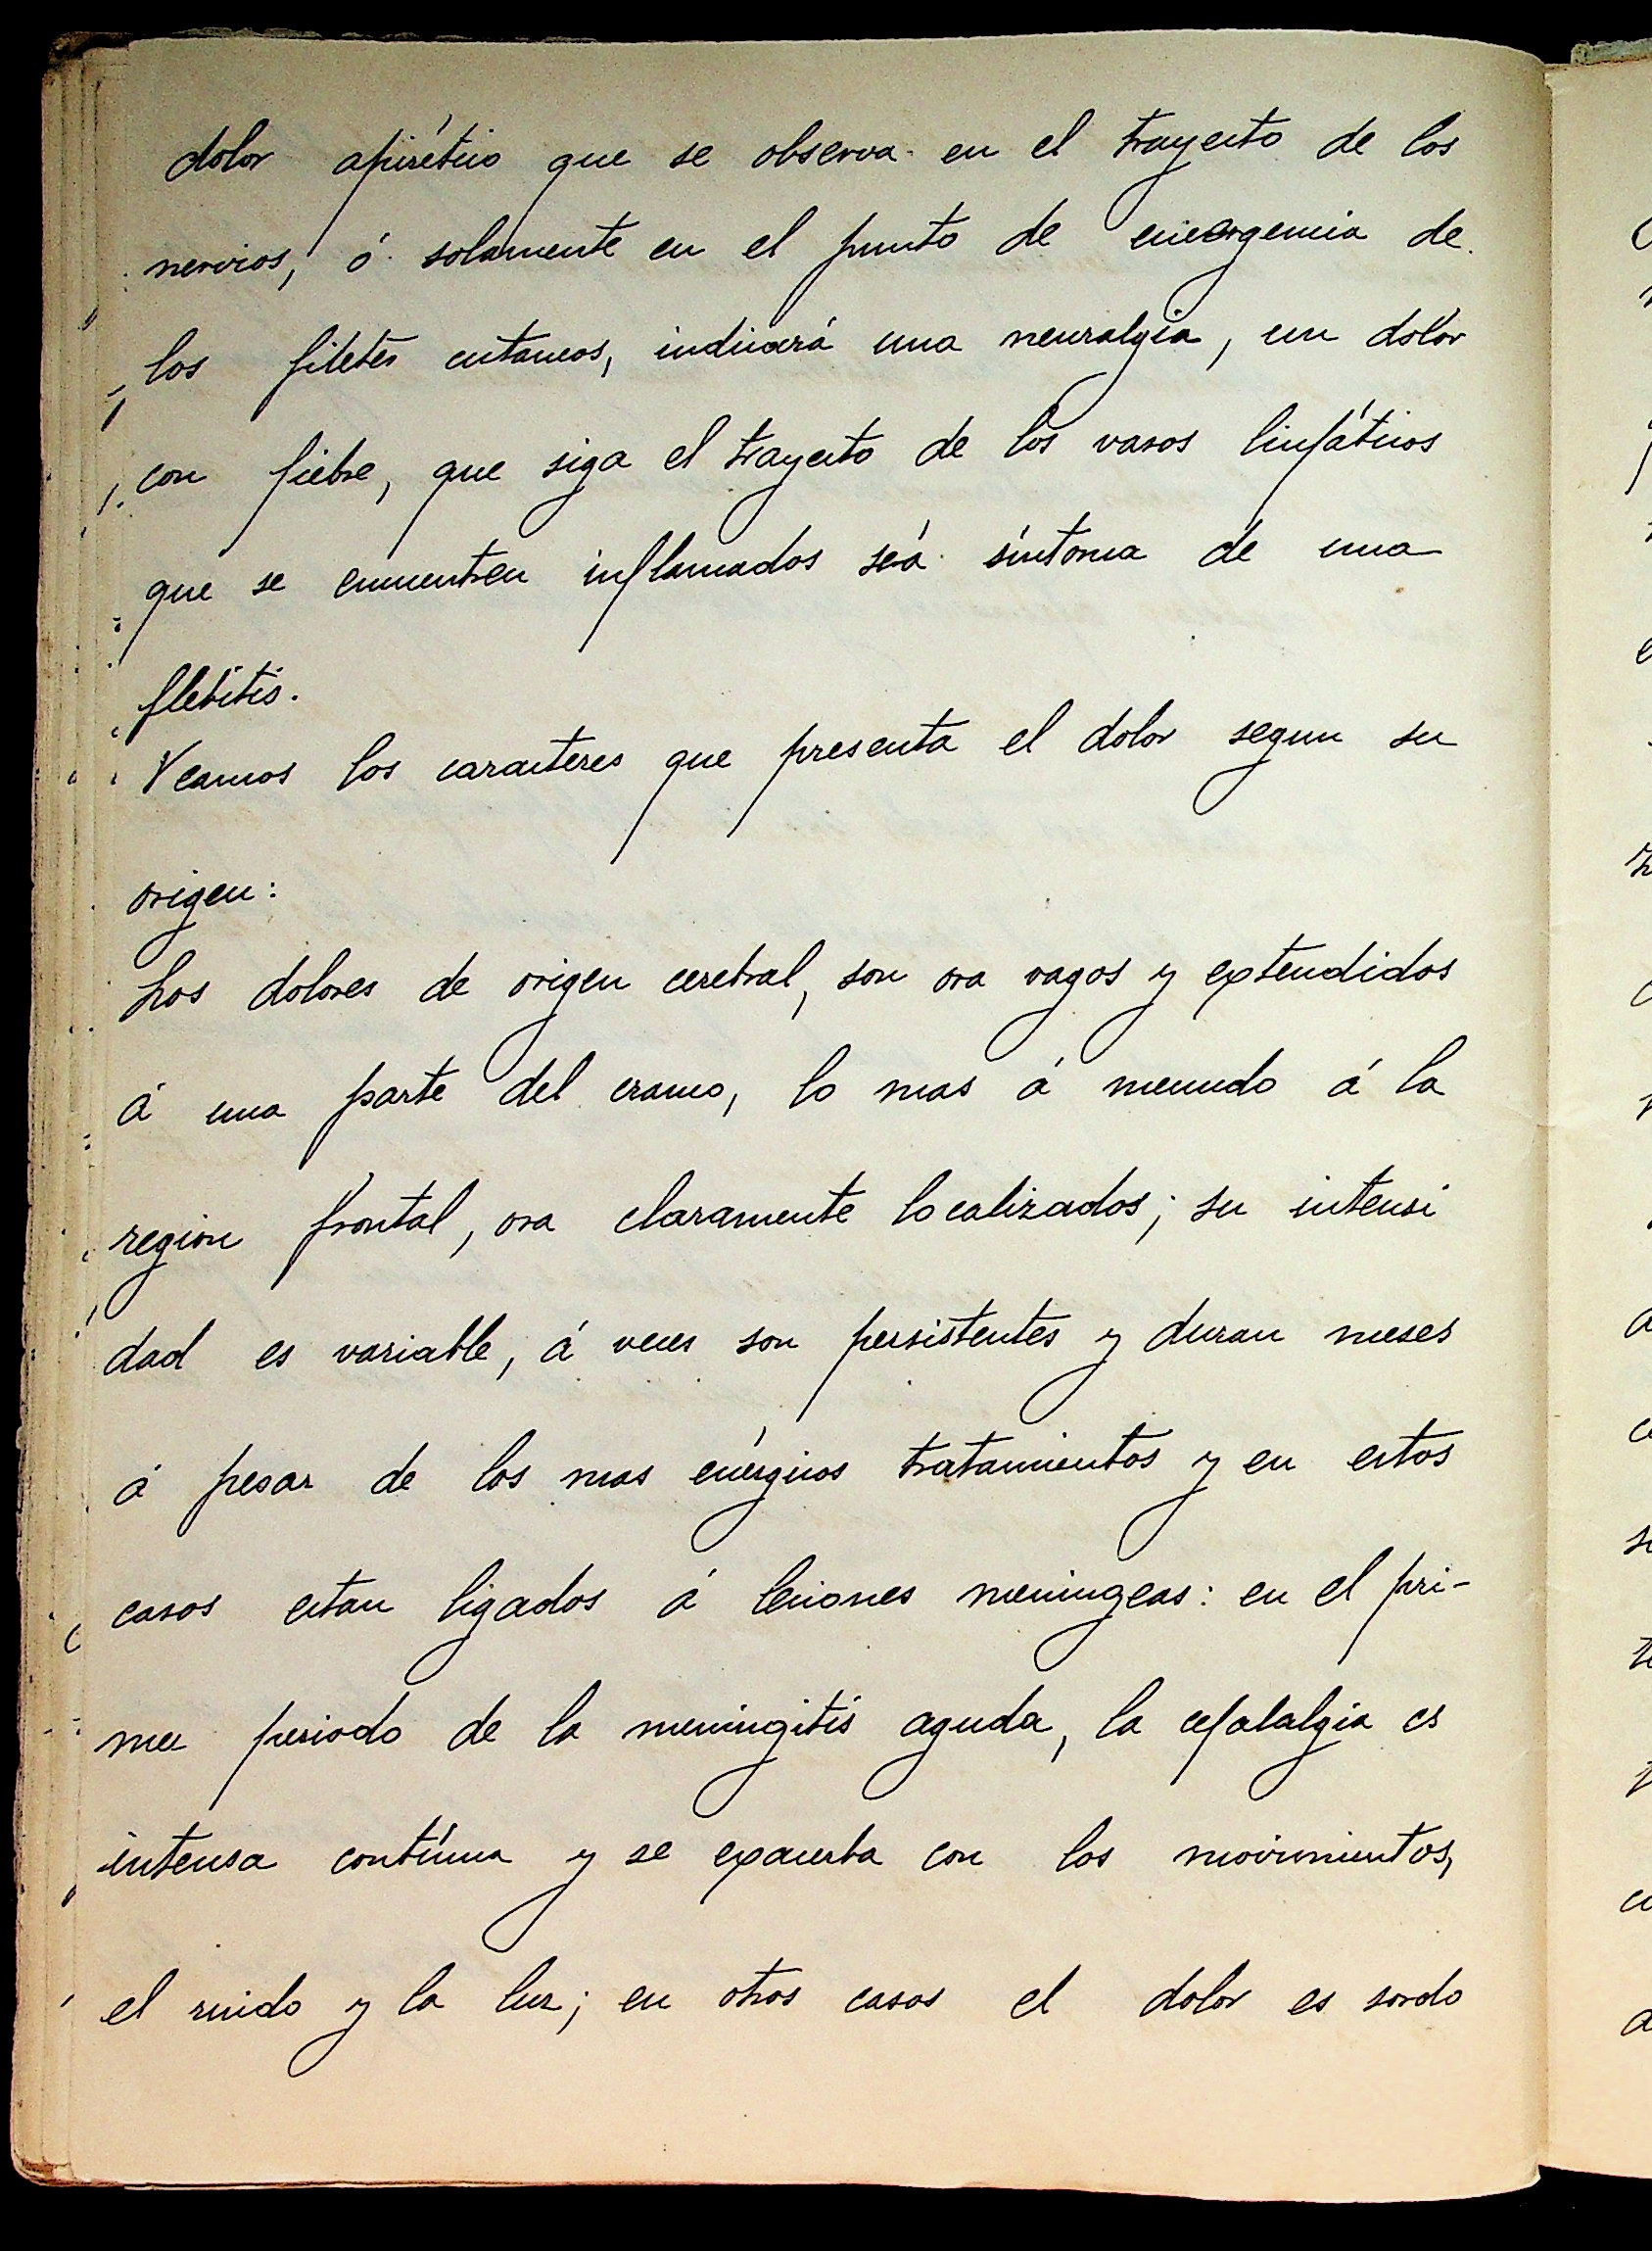 dolor apirético que se observa en el trayecto de los
nervios, ó solamente en el punto de emergencia de
los filetes cutaneos, indicará una neuralgia, un dolor
con fiebre, que siga el trayecto de los vasos linfáticos
que se encuentren inflamados será síntoma de una
flebitis.
Veamos los caracteres que presenta el dolor segun su
origen:
Los dolores de origen cerebral, son ora vagos y extendidos
á una parte del craneo, lo mas á menudo á la
region frontal, ora claramente localizados; su intensi
dad es variable, á veces son persistentes y duran meses
á pesar de los mas enérgicos tratamientos y en estos
casos estan ligados á lesiones meningeas: en el pri-
mer periodo de la meningitis aguda, la cefalalgia es
intensa contínua y se exacerba con los movimientos,
el ruido y la luz; en otros casos el dolor es sordo